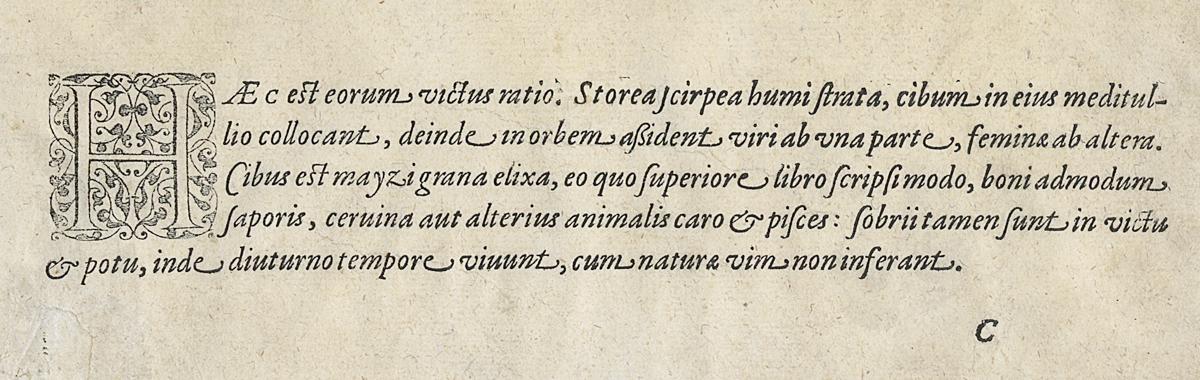 HÆC est eorum victus ratio. Storea scirpea humi strata, cibum in eius meditul-
lio collocant, deinde in orbem aßident viri ab vna parte, feminæ ab altera.
Cibus est mayzi grana elixa, eo quo superiore libro scripsi modo, boni admodum
saporis, ceruina aut alterius animalis caro & pisces: sobrii tamen sunt in victu
& potu, inde diuturno tempore viuunt, cum naturæ vim non inferant.
C